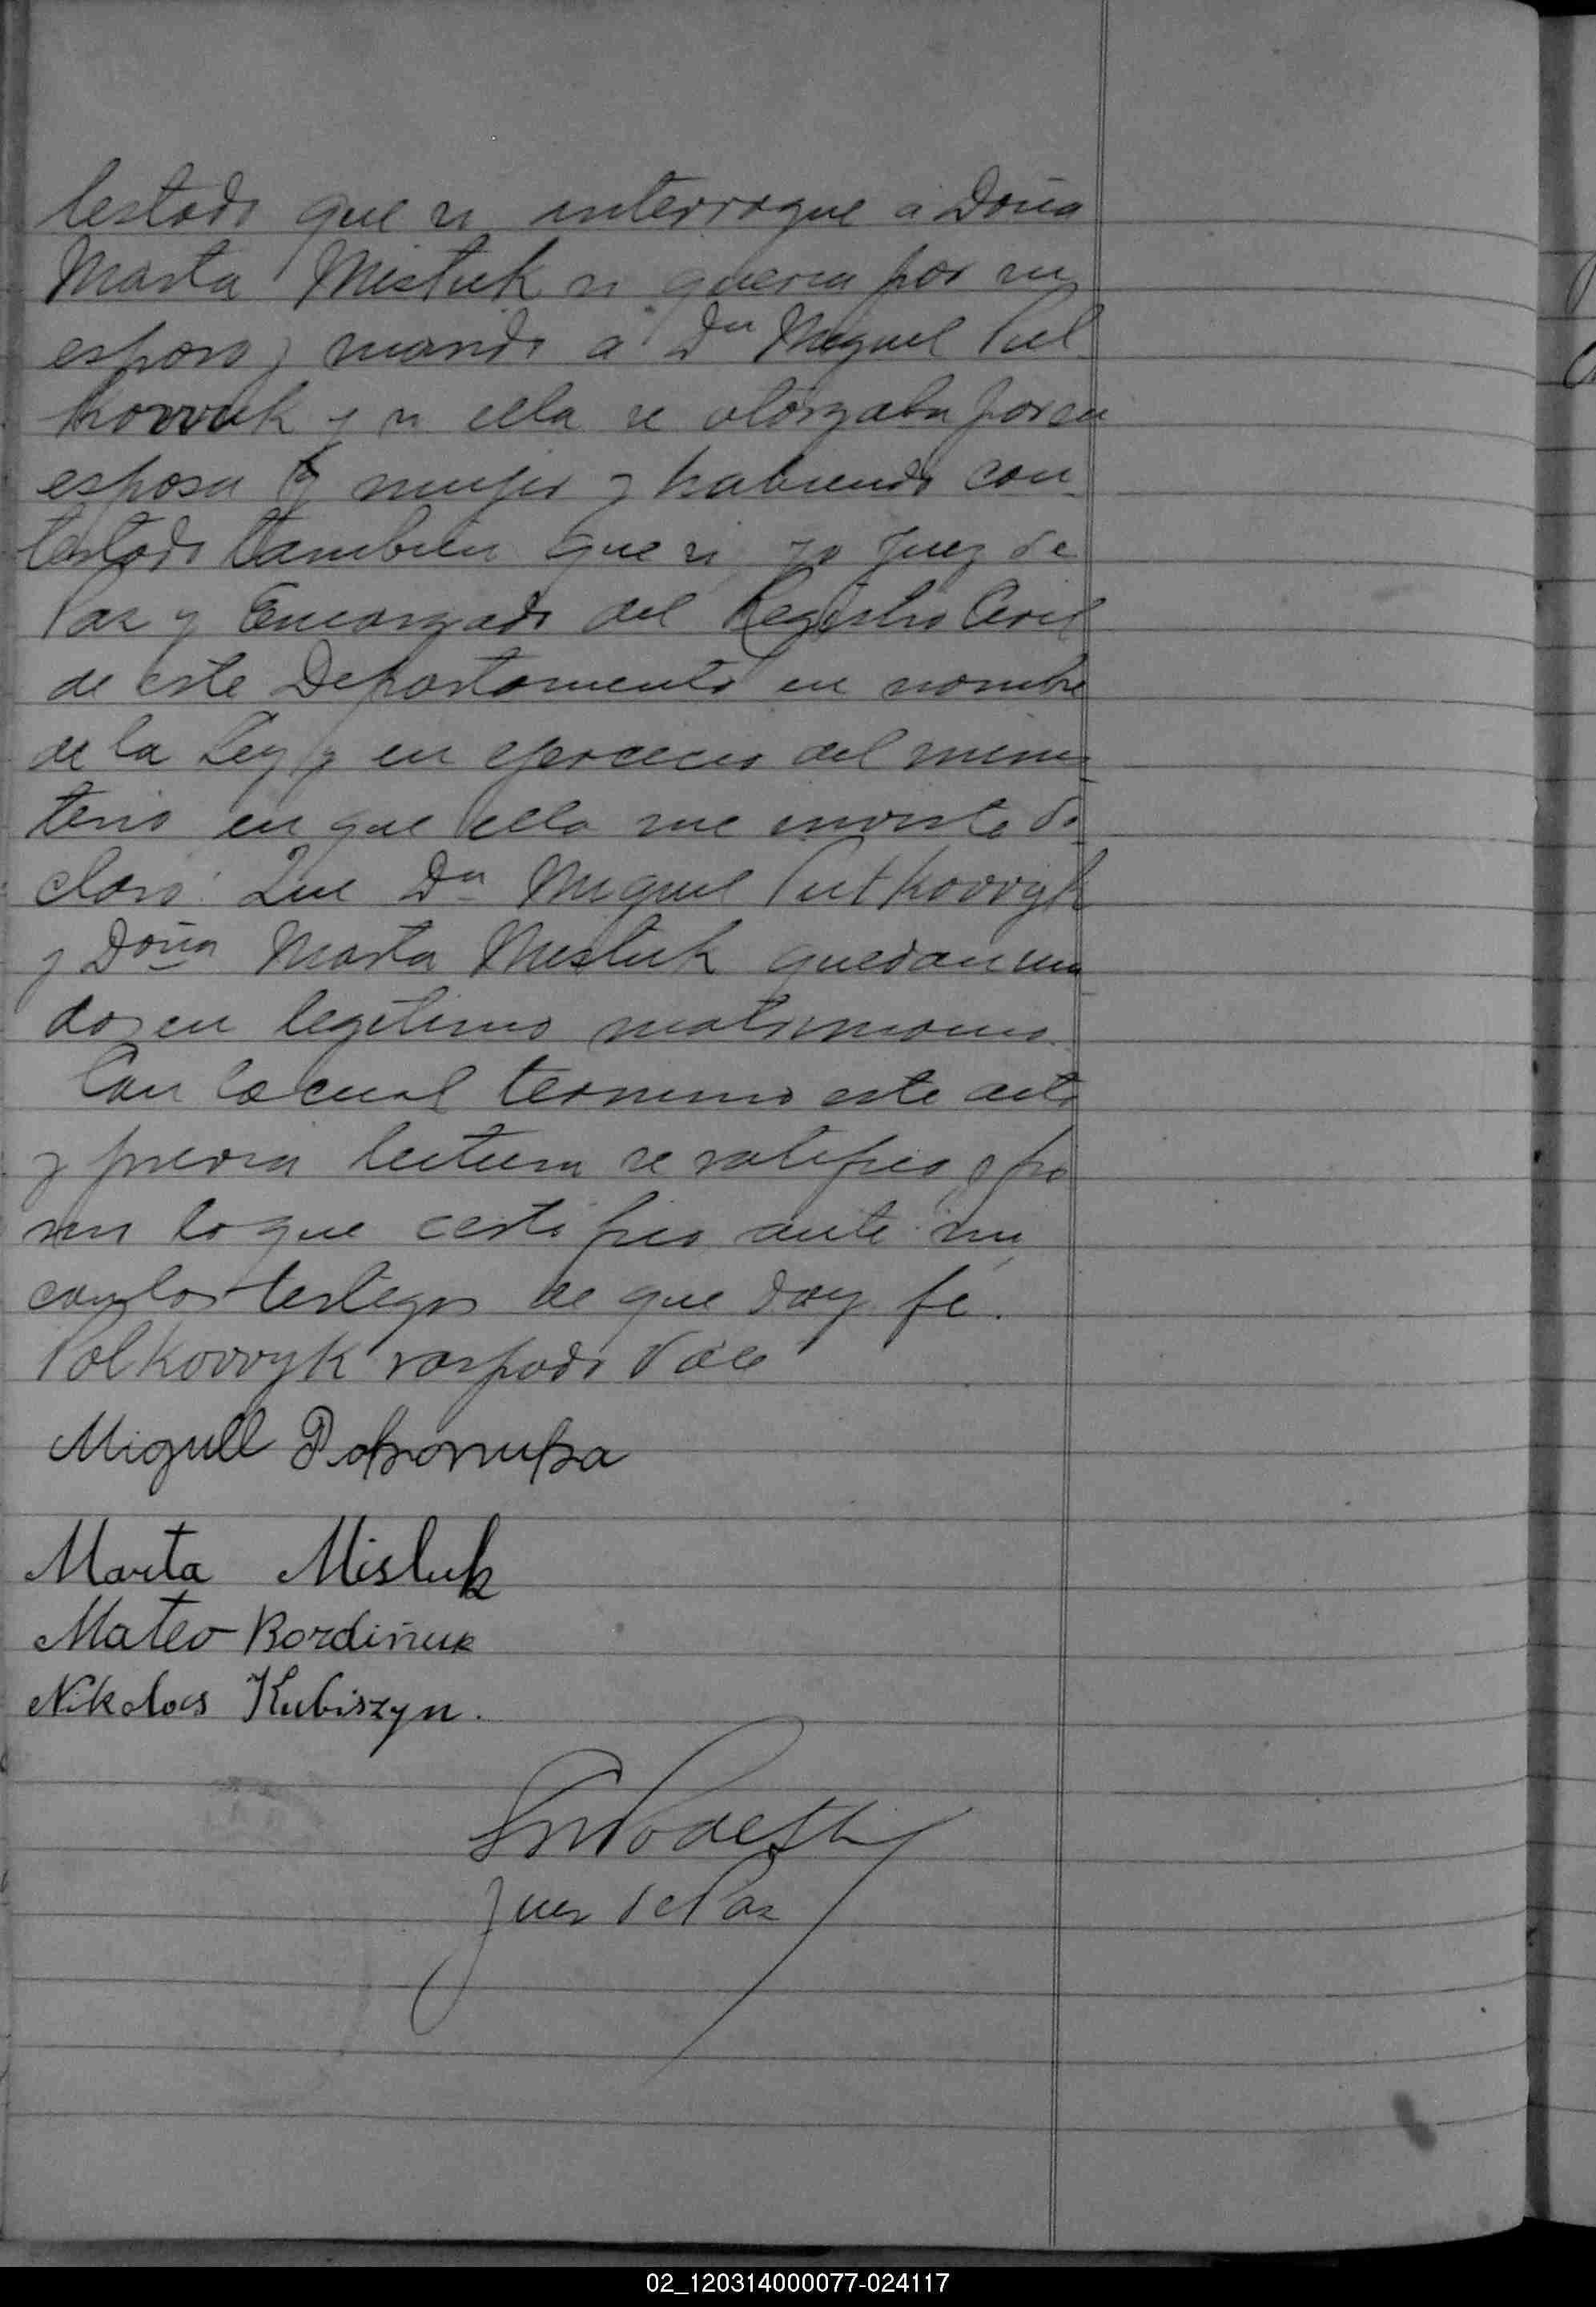 testado que si interrogue a Doña
Marta Misluk si queria por su
esposo y marido a Dn Miguel Pul
kovvuk y si ella se otorgaba por su
esposa y mujer y habiendo con-
testado tambien que si, yo Juez de
Paz y Encargado del Registro Civil
de este Departamento en nombre
de la Ley y en ejercicio del minis-
terio en que ella me inviste de-
claro: Que Dn Miguel Putkovvyk
y Doña Marta Misluk quedan uni
dos en legitimo matrimonio.
Con lo cual termino este acto
y previa lectura se ratifico y fir
man lo que certifico ante mi
con los testigos de que doy fe.
Polkovvyk raspado Vale
Migull
Marta Misluk
Mateo Bordiñuk
Nikolas Kubiszyn.
Podesta
Juez de Paz
02_120314000077-024117